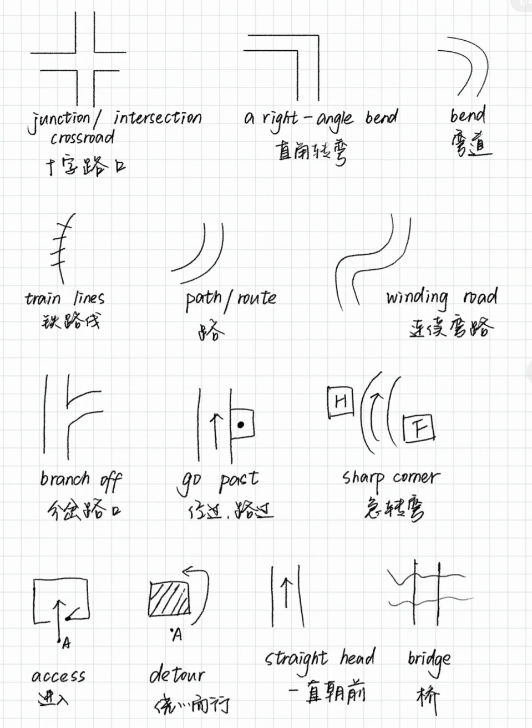 junction/ intersection
crossroad
十字路口
a right-angle bend
直角转弯
bend
弯道
train lines
铁路线
path/route
路
winding road
连续弯路
branch off
分岔路口
go past
经过、路过
H
F
sharp corner
急转弯
A
access
进入
A
detour
绕……而行
straight head
一直朝前
bridge
桥